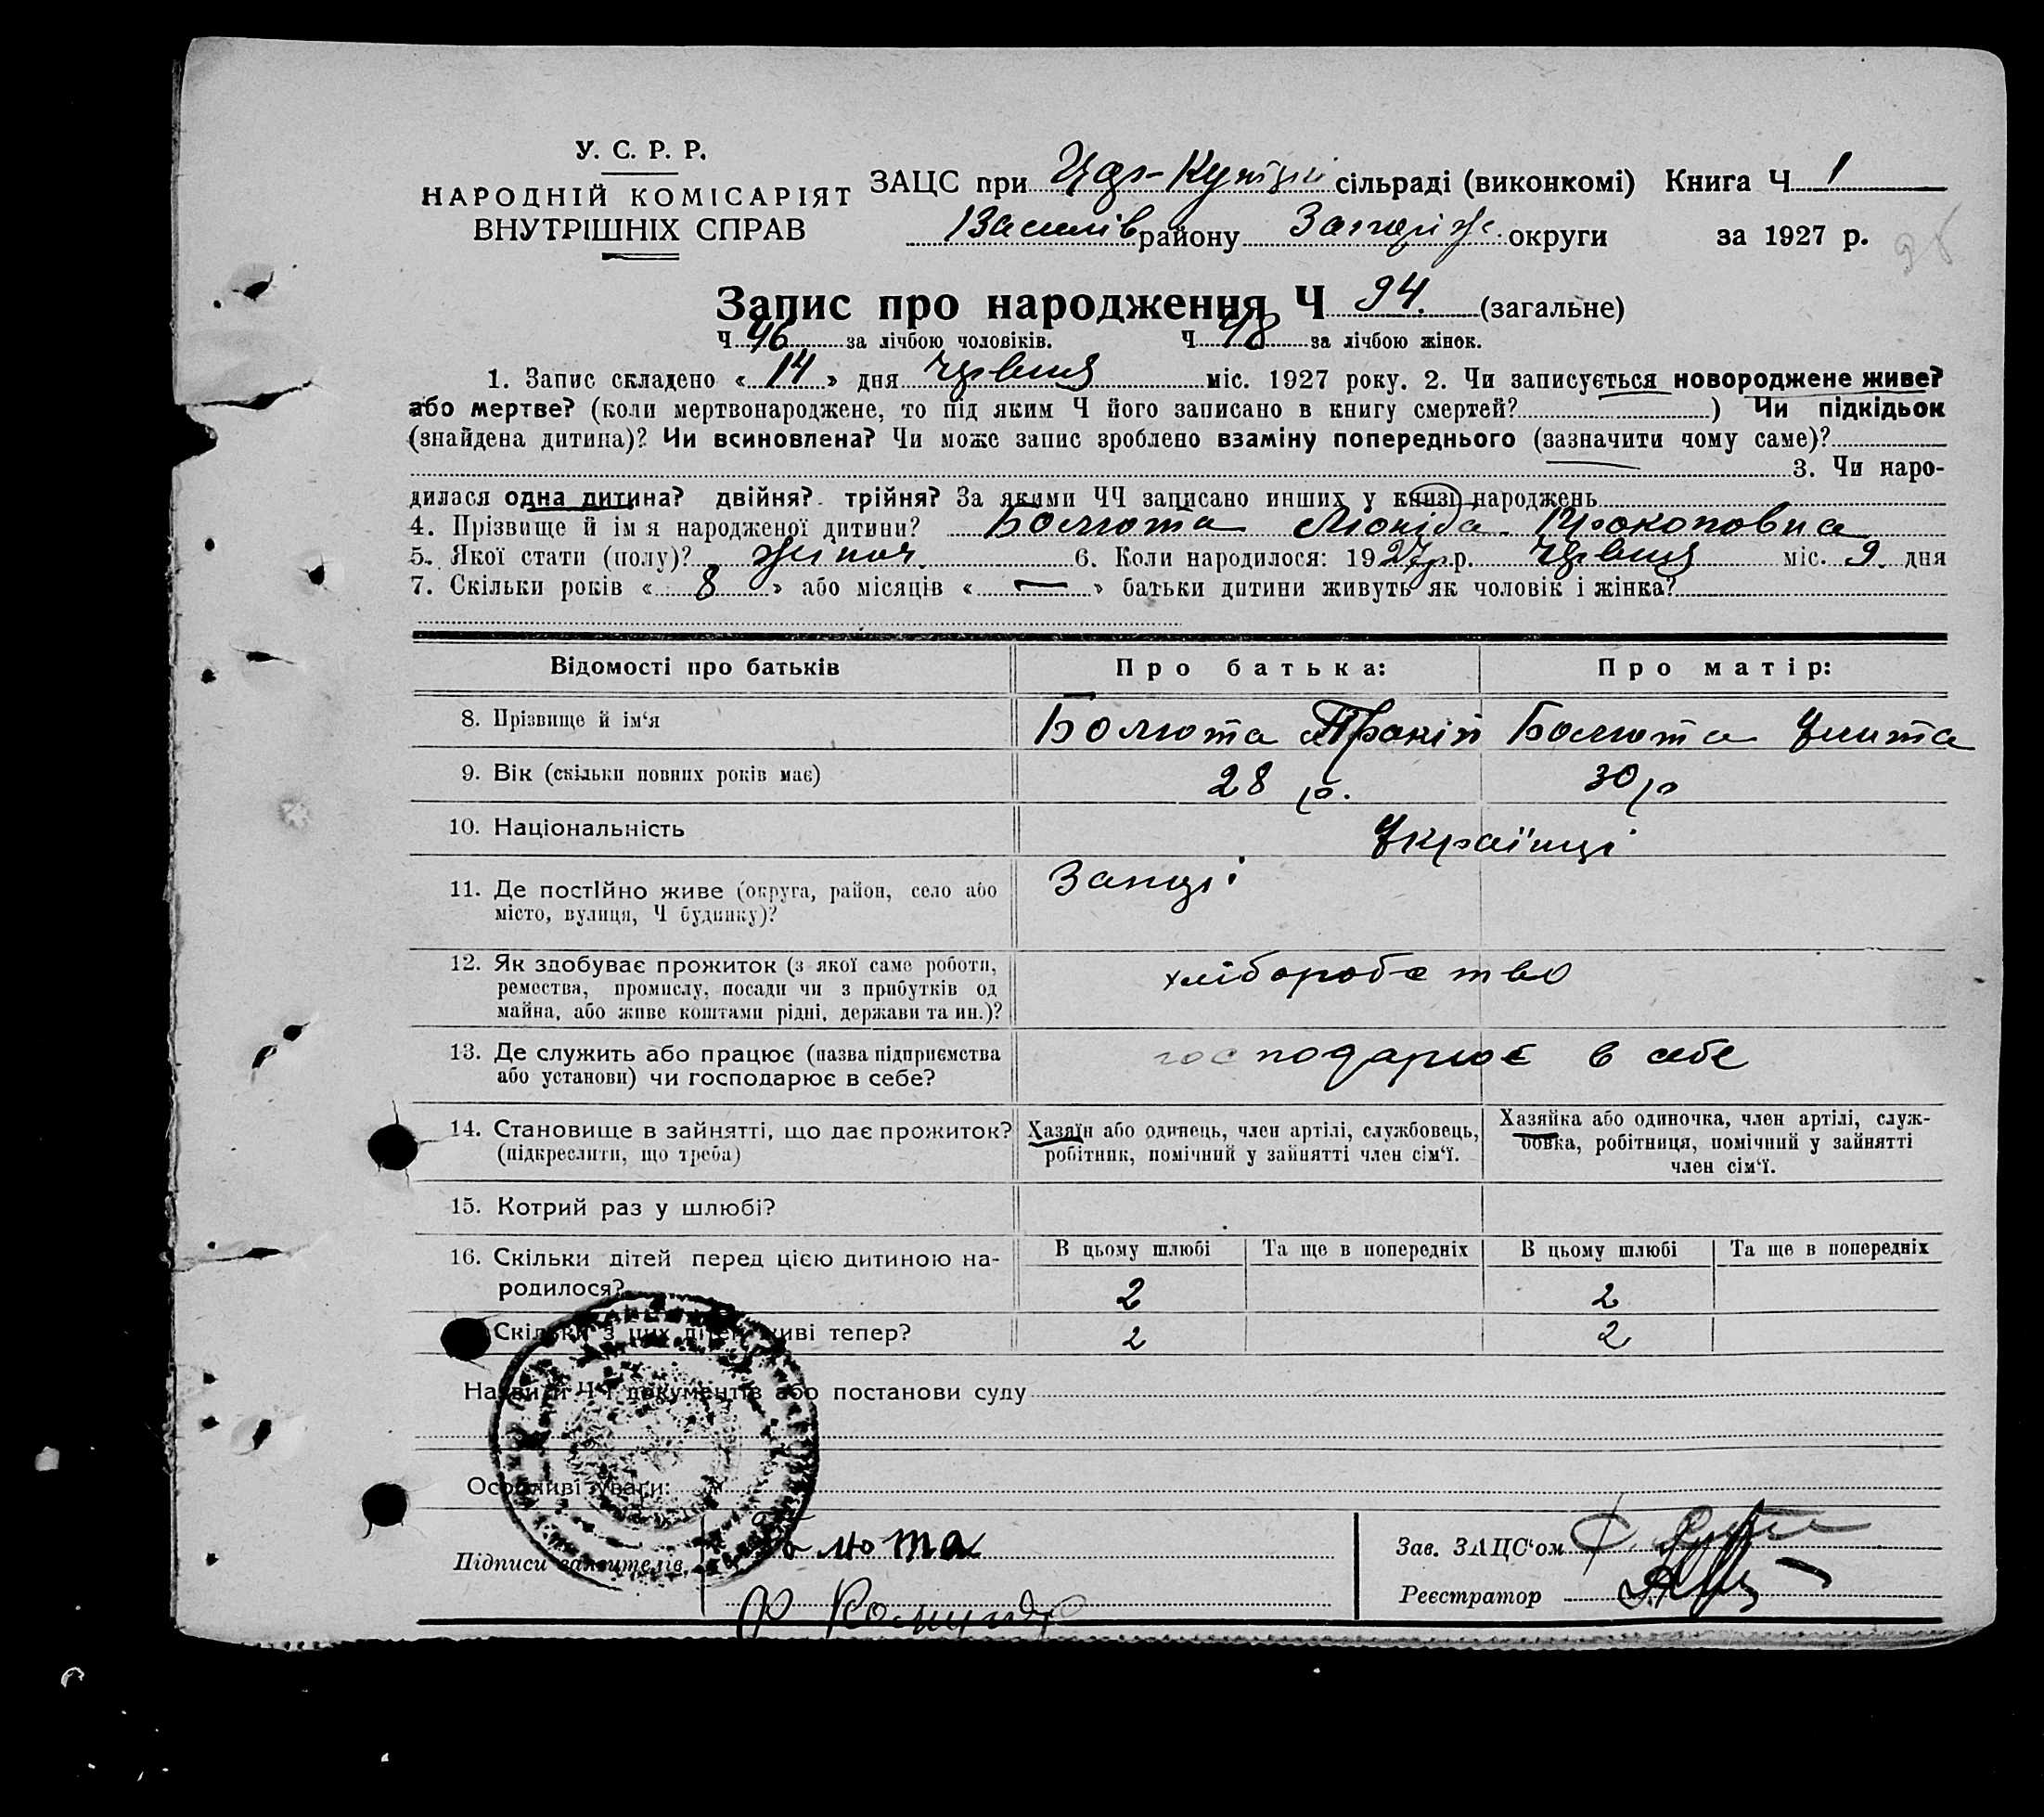 У. С. Р. Р.
НАРОДНІЙ КОМІСАРІЯТ
ВНУТРІШНІХ СПРАВ
ЗАЦС при Цар-Кутській сільраді (виконкомі) Книга Ч 1
Василів району Запоріж. округи за 1927 р.
Запис про народження Ч 94. (загальне)
Ч 46 за лічбою чоловіків. Ч 48 за лічбою жінок.
1. Запис складено « 14 » дня червня міс. 1927 року. 2. Чи записується новороджене живе?
або мертве? (коли мертвонароджене, то під яким Ч його записано в книгу смертей? ) Чи підкідьок
(знайдена дитина)? Чи всиновлена? Чи може запис зроблено взаміну попереднього (зазначити чому саме)?
3. Чи наро-
дилася одна дитина? двійня? трійня? За якими ЧЧ записано инших у книзі народжень
4. Прізвище й імя народженої дитини? Болюта Прокоповна
5. Якої стати (полу)? жіноч. 6. Коли народилося: 1927 р. червня міс. 9. дня
7. Скільки років « 8 » або місяців « — » батьки дитини живуть як чоловік і жінка?
Відомості про батьків Про батька: Про матір:
8. Прізвище й ім‘я Болюта Прокіп Болюта Улита
9. Вік (скільки повних років має) 28 р. 30 р
10. Національність Українці
11. Де постійно живе (округа, район, село або
місто, вулиця, Ч будинку)?
12. Як здобуває прожиток (з якої саме роботи,
ремества, промислу, посади чи з прибутків од
майна, або живе коштами рідні, держави та ин.)?
хліборобство
13. Де служить або працює (назва підприємства
або установи) чи господарює в себе?
господарює в себе
14. Становище в зайнятті, що дає прожиток?
(підкреслити, що треба)
Хазяїн або одинець, член артілі, службовець,
робітник, помічний у зайнятті член сім‘ї.
Хазяйка або одиночка, член артілі, служ-
бовка, робітниця, помічний у зайнятті
член сім‘ї.
15. Котрий раз у шлюбі?
16. Скільки дітей перед цією дитиною на-
родилося?
В цьому шлюбі Та ще в попередніх В цьому шлюбі Та ще в попередніх
2 2
Скільки з цих дітей живі тепер? 2 2
Назви й ЧЧ документів або постанови суду
Особливі уваги:
Підписи заявителів Болюта
Зав. ЗАЦС‘ом
Реєстратор